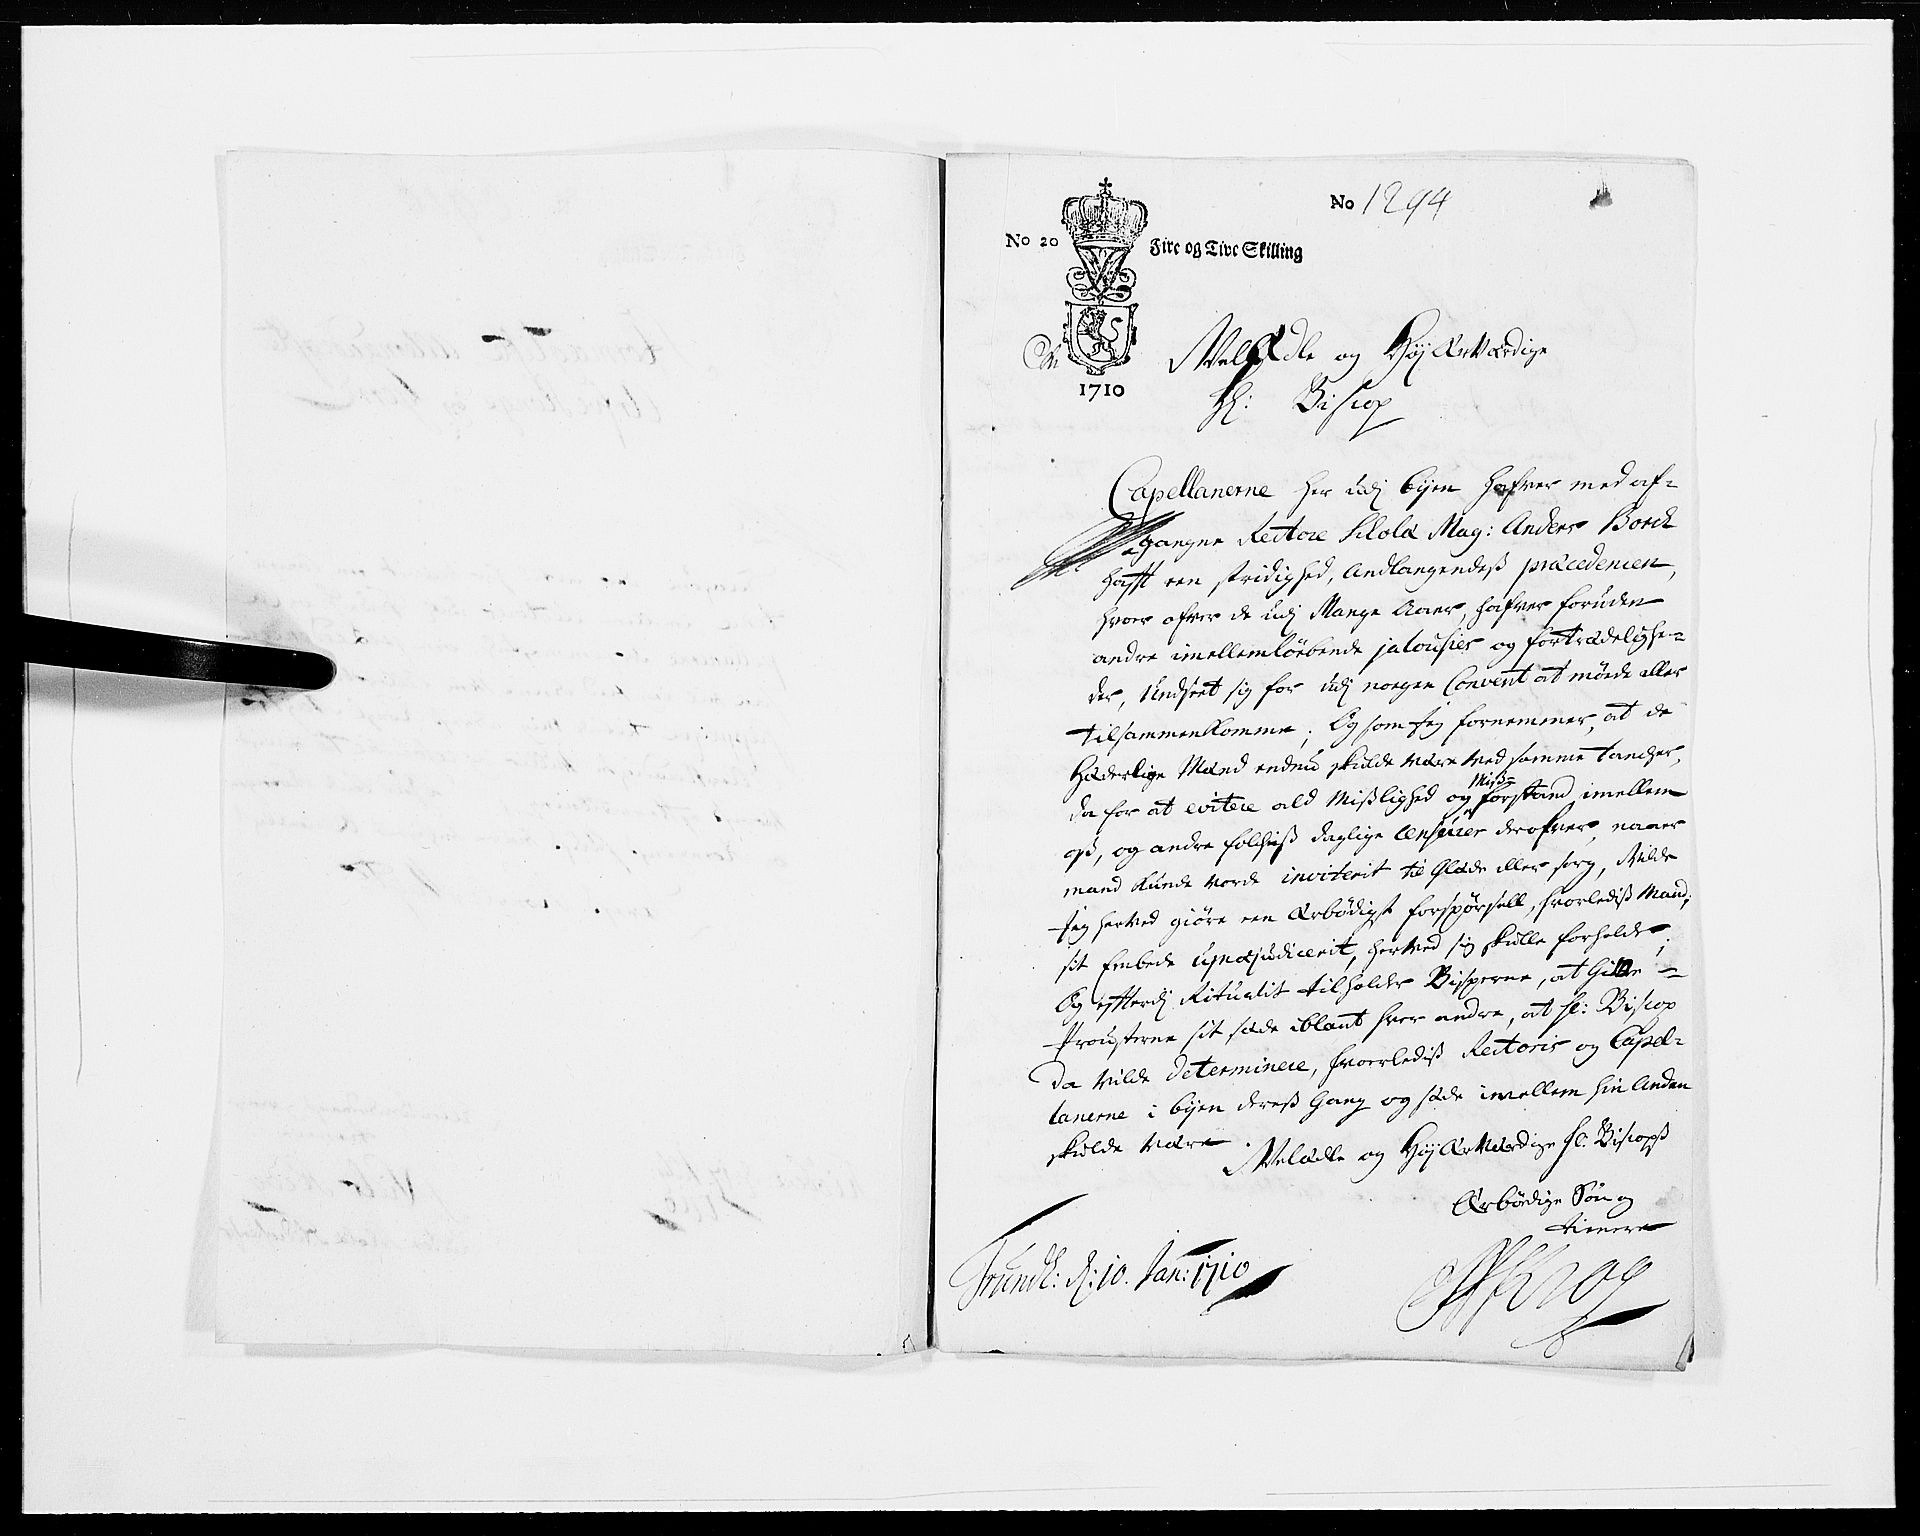 No 1294
No 20
Fire og Tive Skilling
1710
WelÆdle og HøjÆrværdige
Hr: Biscop
Capellanerne her udj byen hafver med af-
gangne Rectore Scholæ Mag: Anders Borch
hafft een stridighed, Andlangendeß præcedencen,
hvor ofver de udj Mange Aaer, hafver foruden
andre imellemlöebende jalousier og fortrædelighe-
der, Undseet sig for udj nogen Convent at möede eller
tilsammenkomme; Og som Jeg fornemmer, at de
Hæderlige Mænd endnu skulde være ved samme tancher,
da for at evitere ald Mißlighed og Miß-
forstand imellem
oß, og andre folchiß daglige censurer derofver, naaer
mand kunde vorde inviterit til Glæde eller sorg, Vilde
Jeg herved giöre een ærbödigst forspörsell, hvorlediß Mand,
sit Embede upræjudicerit, herved sig skulle forholde;
Og effterdj Ritualet tilholder Bisperne, at Give
Prousterne sit sæde iblant hver andre, at Hr: Biscop
da vilde determinere, hvorlediß Rectoris og Capel-
lanerne i byen dereß Gang og sæde imellem hin Anden
skulde være
Welædle og HöjÆrværdige Hr. Biscopß
Ærbödige Sön og
tienere
Trundh: d: 10. Jan: 1710